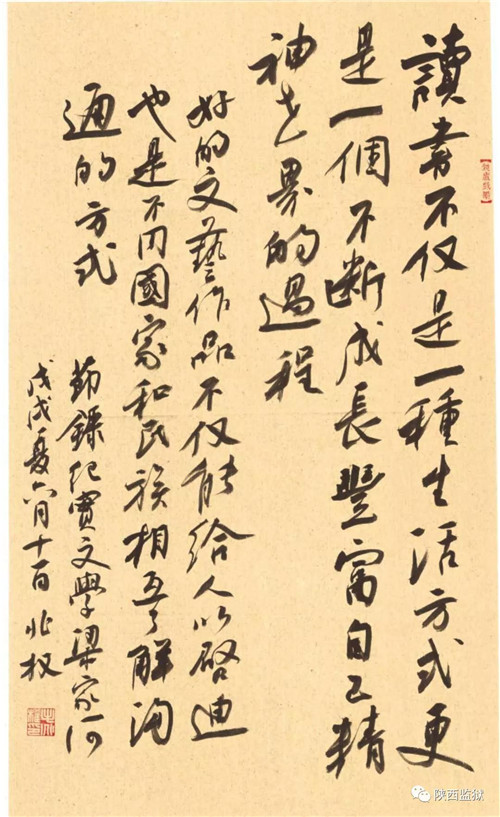 讀書不仅是一種生活方式更
是一個不断成長豐富自己精
神世界的過程
好的文藝作品不仅能给人以啓迪
也是不同國家和民族相互了解沟
通的方式
节錄纪實文學梁家河
戊戌夏六月十一日
陕西监狱